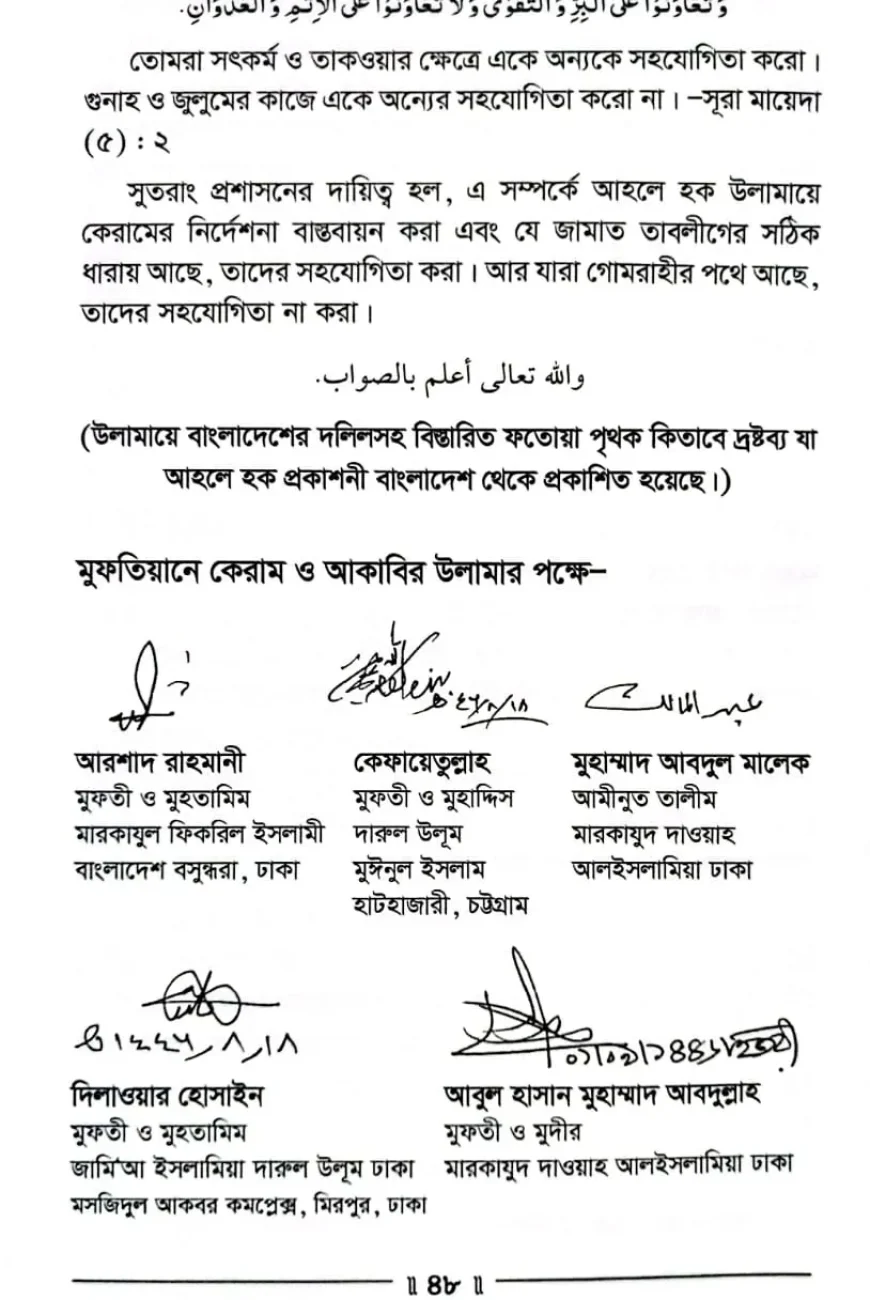 وتعاونوا على البر والتقوى ولا تعاونوا على الإثم والعدوان.
তোমরা সৎকর্ম ও তাকওয়ার ক্ষেত্রে একে অন্যকে সহযোগিতা করো।
গুনাহ ও জুলুমের কাজে একে অন্যের সহযোগিতা করো না। –সূরা মায়েদা
(৫) : ২
সুতরাং প্রশাসনের দায়িত্ব হল, এ সম্পর্কে আহলে হক উলামায়ে
কেরামের নির্দেশনা বাস্তবায়ন করা এবং যে জামাত তাবলীগের সঠিক
ধারায় আছে, তাদের সহযোগিতা করা। আর যারা গোমরাহীর পথে আছে,
তাদের সহযোগিতা না করা।
والله تعالى أعلم بالصواب.
(উলামায়ে বাংলাদেশের দলিলসহ বিস্তারিত ফতোয়া পৃথক কিতাবে দ্রষ্টব্য যা
আহলে হক প্রকাশনী বাংলাদেশ থেকে প্রকাশিত হয়েছে।)
মুফতিয়ানে কেরাম ও আকাবির উলামার পক্ষে–
عبد المالك
আরশাদ রাহমানী
মুফতী ও মুহতামিম
মারকাযুল ফিকরিল ইসলামী
বাংলাদেশ বসুন্ধরা, ঢাকা
কেফায়েতুল্লাহ
মুফতী ও মুহাদ্দিস
দারুল উলূম
মুঈনুল ইসলাম
হাটহাজারী, চট্টগ্রাম
মুহাম্মাদ আবদুল মালেক
আমীনুত তালীম
মারকাযুদ দাওয়াহ
আলইসলামিয়া ঢাকা
দিলাওয়ার হোসাইন
মুফতী ও মুহতামিম
জামি'আ ইসলামিয়া দারুল উলূম ঢাকা
মসজিদুল আকবর কমপ্লেক্স, মিরপুর, ঢাকা
আবুল হাসান মুহাম্মাদ আবদুল্লাহ
মুফতী ও মুদীর
মারকাযুদ দাওয়াহ আলইসলামিয়া ঢাকা
॥ ৪৮ ॥